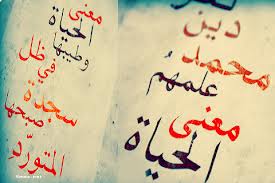 دين
محمد
علمهم
معنى
الحياة
معنى
الحياة
وطيبها
في ظل
سجدة
صبحها
المتورّد